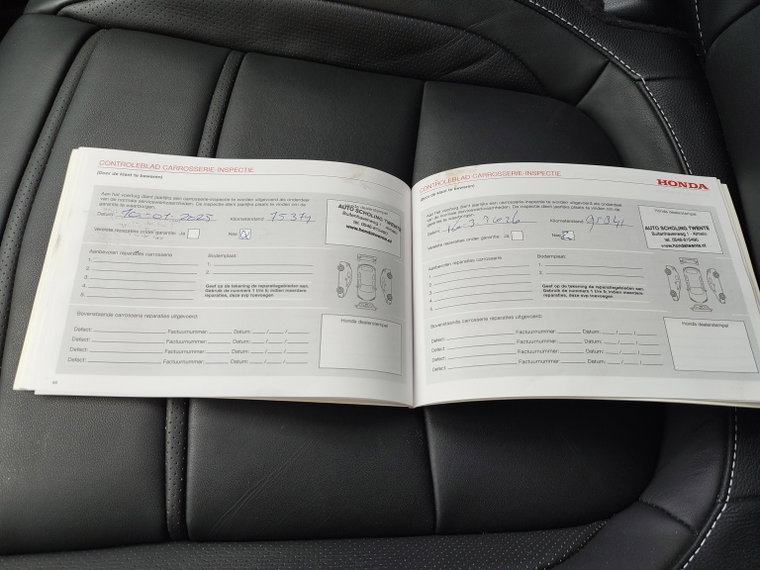 CONTROLEBLAD CARROSSERIE-INSPECTIE
(Door de klant te bewaren)
Aan het voertuig dient jaarlijks een carrosserie-inspectie te worden uitgevoerd als onderdeel
van de normale servicewerkzaamheden. De inspectie dient jaarlijks plaats te vinden om de
garantie te waarborgen.
Datum: 10-01-2025 Kilometerstand:
Vereiste reparaties onder garantie: Ja Nee
Honda dealerstempel
AUTO SCHOLING TWENTE
Buitenhavenweg 1 - Almelo
www.hondatwente.nl
Aanbevolen reparaties carrosserie
Bodemplaat:
1.
2.
3.
4.
5.
1.
2.
Geef op de tekening de reparatiegebieden aan.
Gebruik de nummers 1 t/m 5; indien meerdere
reparaties, deze svp toevoegen
Bovenstaande carrosserie reparaties uitgevoerd:
Defect: Factuurnummer: Datum: / /
Defect: Factuurnummer: Datum: / /
Defect: Factuurnummer: Datum: / /
Defect: Factuurnummer: Datum: / /
Honda dealerstempel
CONTROLEBLAD CARROSSERIE-INSPECTIE
(Door de klant te bewaren)
HONDA
Aan het voertuig dient jaarlijks een carrosserie-inspectie te worden uitgevoerd als onderdeel
van de normale servicewerkzaamheden. De inspectie dient jaarlijks plaats te vinden om de
garantie te waarborgen.
Kilometerstand:
Vereiste reparaties onder garantie: Ja Nee
Honda dealerstempel
AUTO SCHOLING TWENTE
Buitenhavenweg 1 - Almelo
www.hondatwente.nl
Aanbevolen reparaties carrosserie
Bodemplaat:
1.
2.
3.
4.
5.
1.
2.
Geef op de tekening de reparatiegebieden aan.
Gebruik de nummers 1 t/m 5; indien meerdere
reparaties, deze svp toevoegen
Bovenstaande carrosserie reparaties uitgevoerd:
Defect: Factuurnummer: Datum: / /
Defect: Factuurnummer: Datum: / /
Defect: Factuurnummer: Datum: / /
Defect: Factuurnummer: Datum: / /
Honda dealerstempel